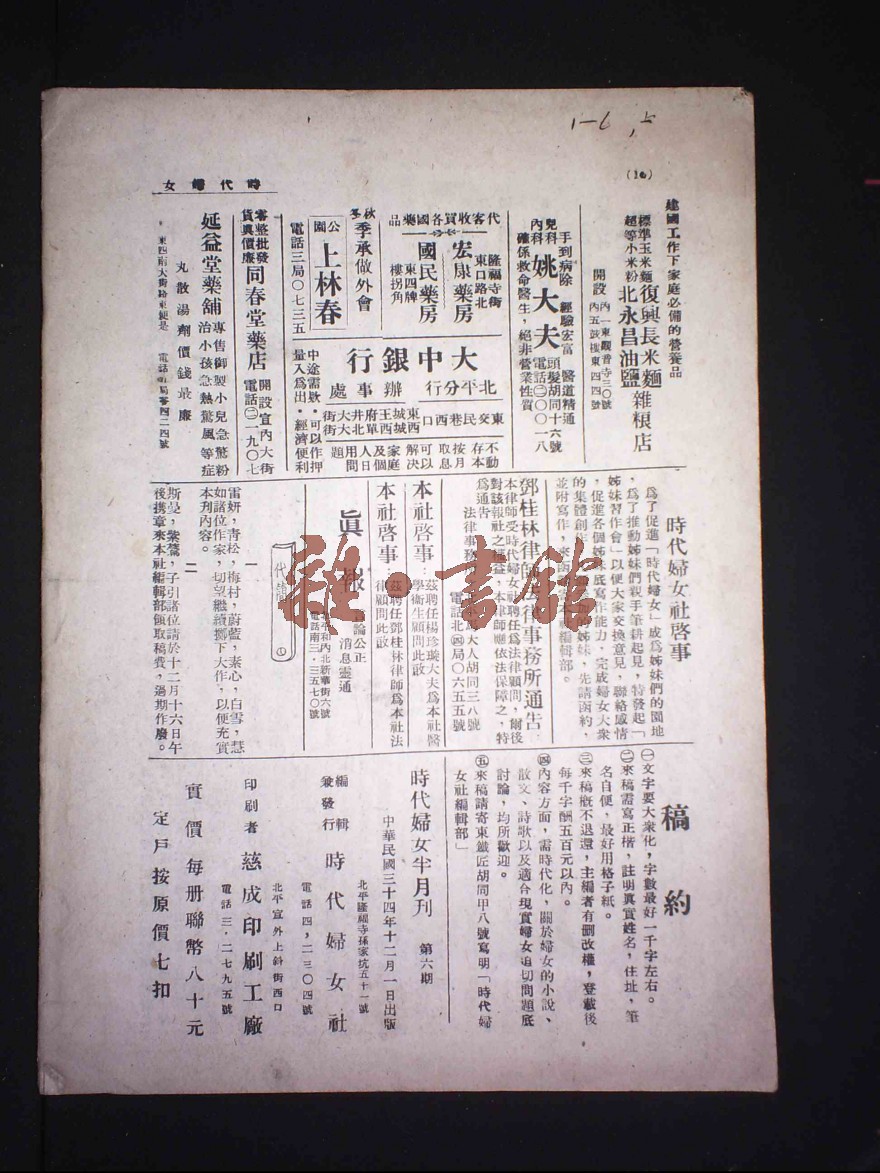 (16)
時代婦女
1-6
建國工作下家庭必備的營養品
標準玉米麵
超等小米粉
復興長米麵
北永昌油鹽
雜粮店
開設
內一東觀音寺三〇號
內五鼓樓東四四號
手到病除 經驗宏富 醫道精通
兒科
內科
姚大夫
頭髮胡同十六號
電話(二)〇〇一八
確係救命醫生，絕非營業性質
代客收買各國藥品
隆福寺街
東口路北
宏康藥房
國民藥房
東四牌
樓拐角
秋冬季承做外會
公園
上林春
電話三局〇七三五
大中銀行
北平分行
辦事處
東交民巷西口
東城王府井大街
西城西單北大街
不動本存
按月取息
可以解決
家庭及個
人日用問題
中途需欵，可以作押
量入爲出，經濟便利
零整批發
貨眞價廉
同春堂藥店
開設宣內大街
電話(二)一九〇七
延益堂藥舖
專售御製小兒急驚粉
治小孩急熱驚風等症
丸散湯劑價錢最廉
東四南大街路東便是
時代婦女社啓事
爲了促進「時代婦女」成爲姊妹們的園地
，爲了推動姊妹們親手筆耕起見，特發起「
姊妹習作會」以便大家交換意見，聯絡感情
，促進各個姊妹底寫作能力，完成婦女大衆
的集體創作，
的姊妹，先請函約，
並附寫作，來函
編輯部。
鄧桂林律師
法律事務所通告
本律師受時代婦女社聘任爲法律顧問，爾後
對該報社之權益，本律師應依法保障之，特
爲通告
法律事務
大人胡同三八號
電話北(四)局〇六五五號
本社啓事：
茲聘任楊珍璇大夫爲本社醫
學衛生顧問此啟
本社啓事：
茲聘任鄧桂林律師爲本社法
律顧問此啟
眞報
言論公正
消息靈通
北平和內北新華街六號
電話南三·三五七〇號
代郵
一
雷妍，靑松，梅村，蔚藍，素心，白雪，慧
如諸位作家，切望繼續擲下大作，以便充實
本刊內容。
二
斯曼，紫鶯，子引諸位請於十二月十六日午
後携章來本社編輯部領取稿費，過期作廢。
稿約
㊀文字要大衆化，字數最好一千字左右。
㊁來稿需寫正楷，註明眞實姓名，住址，筆
名自便，最好用格子紙。
㊂來稿槪不退還，主編者有刪改權，登載後
每千字酬五百元以內。
㊃內容方面，需時代化，關於婦女的小說、
散文、詩歌以及適合現實婦女迫切問題底
討論，均所歡迎。
㊄來稿請寄東鐵匠胡同甲八號寫明「時代婦
女社編輯部」
時代婦女半月刊 第六期
中華民國三十四年十二月一日出版
編輯
兼發行
時代婦女社
北平隆福寺孫家坑五十一號
電話四，二三〇四號
印刷者
慈成印刷工廠
北平宣外上斜街西口
電話三·二七九五號
實價每册聯幣八十元
定戶按原價七扣
雜·書館